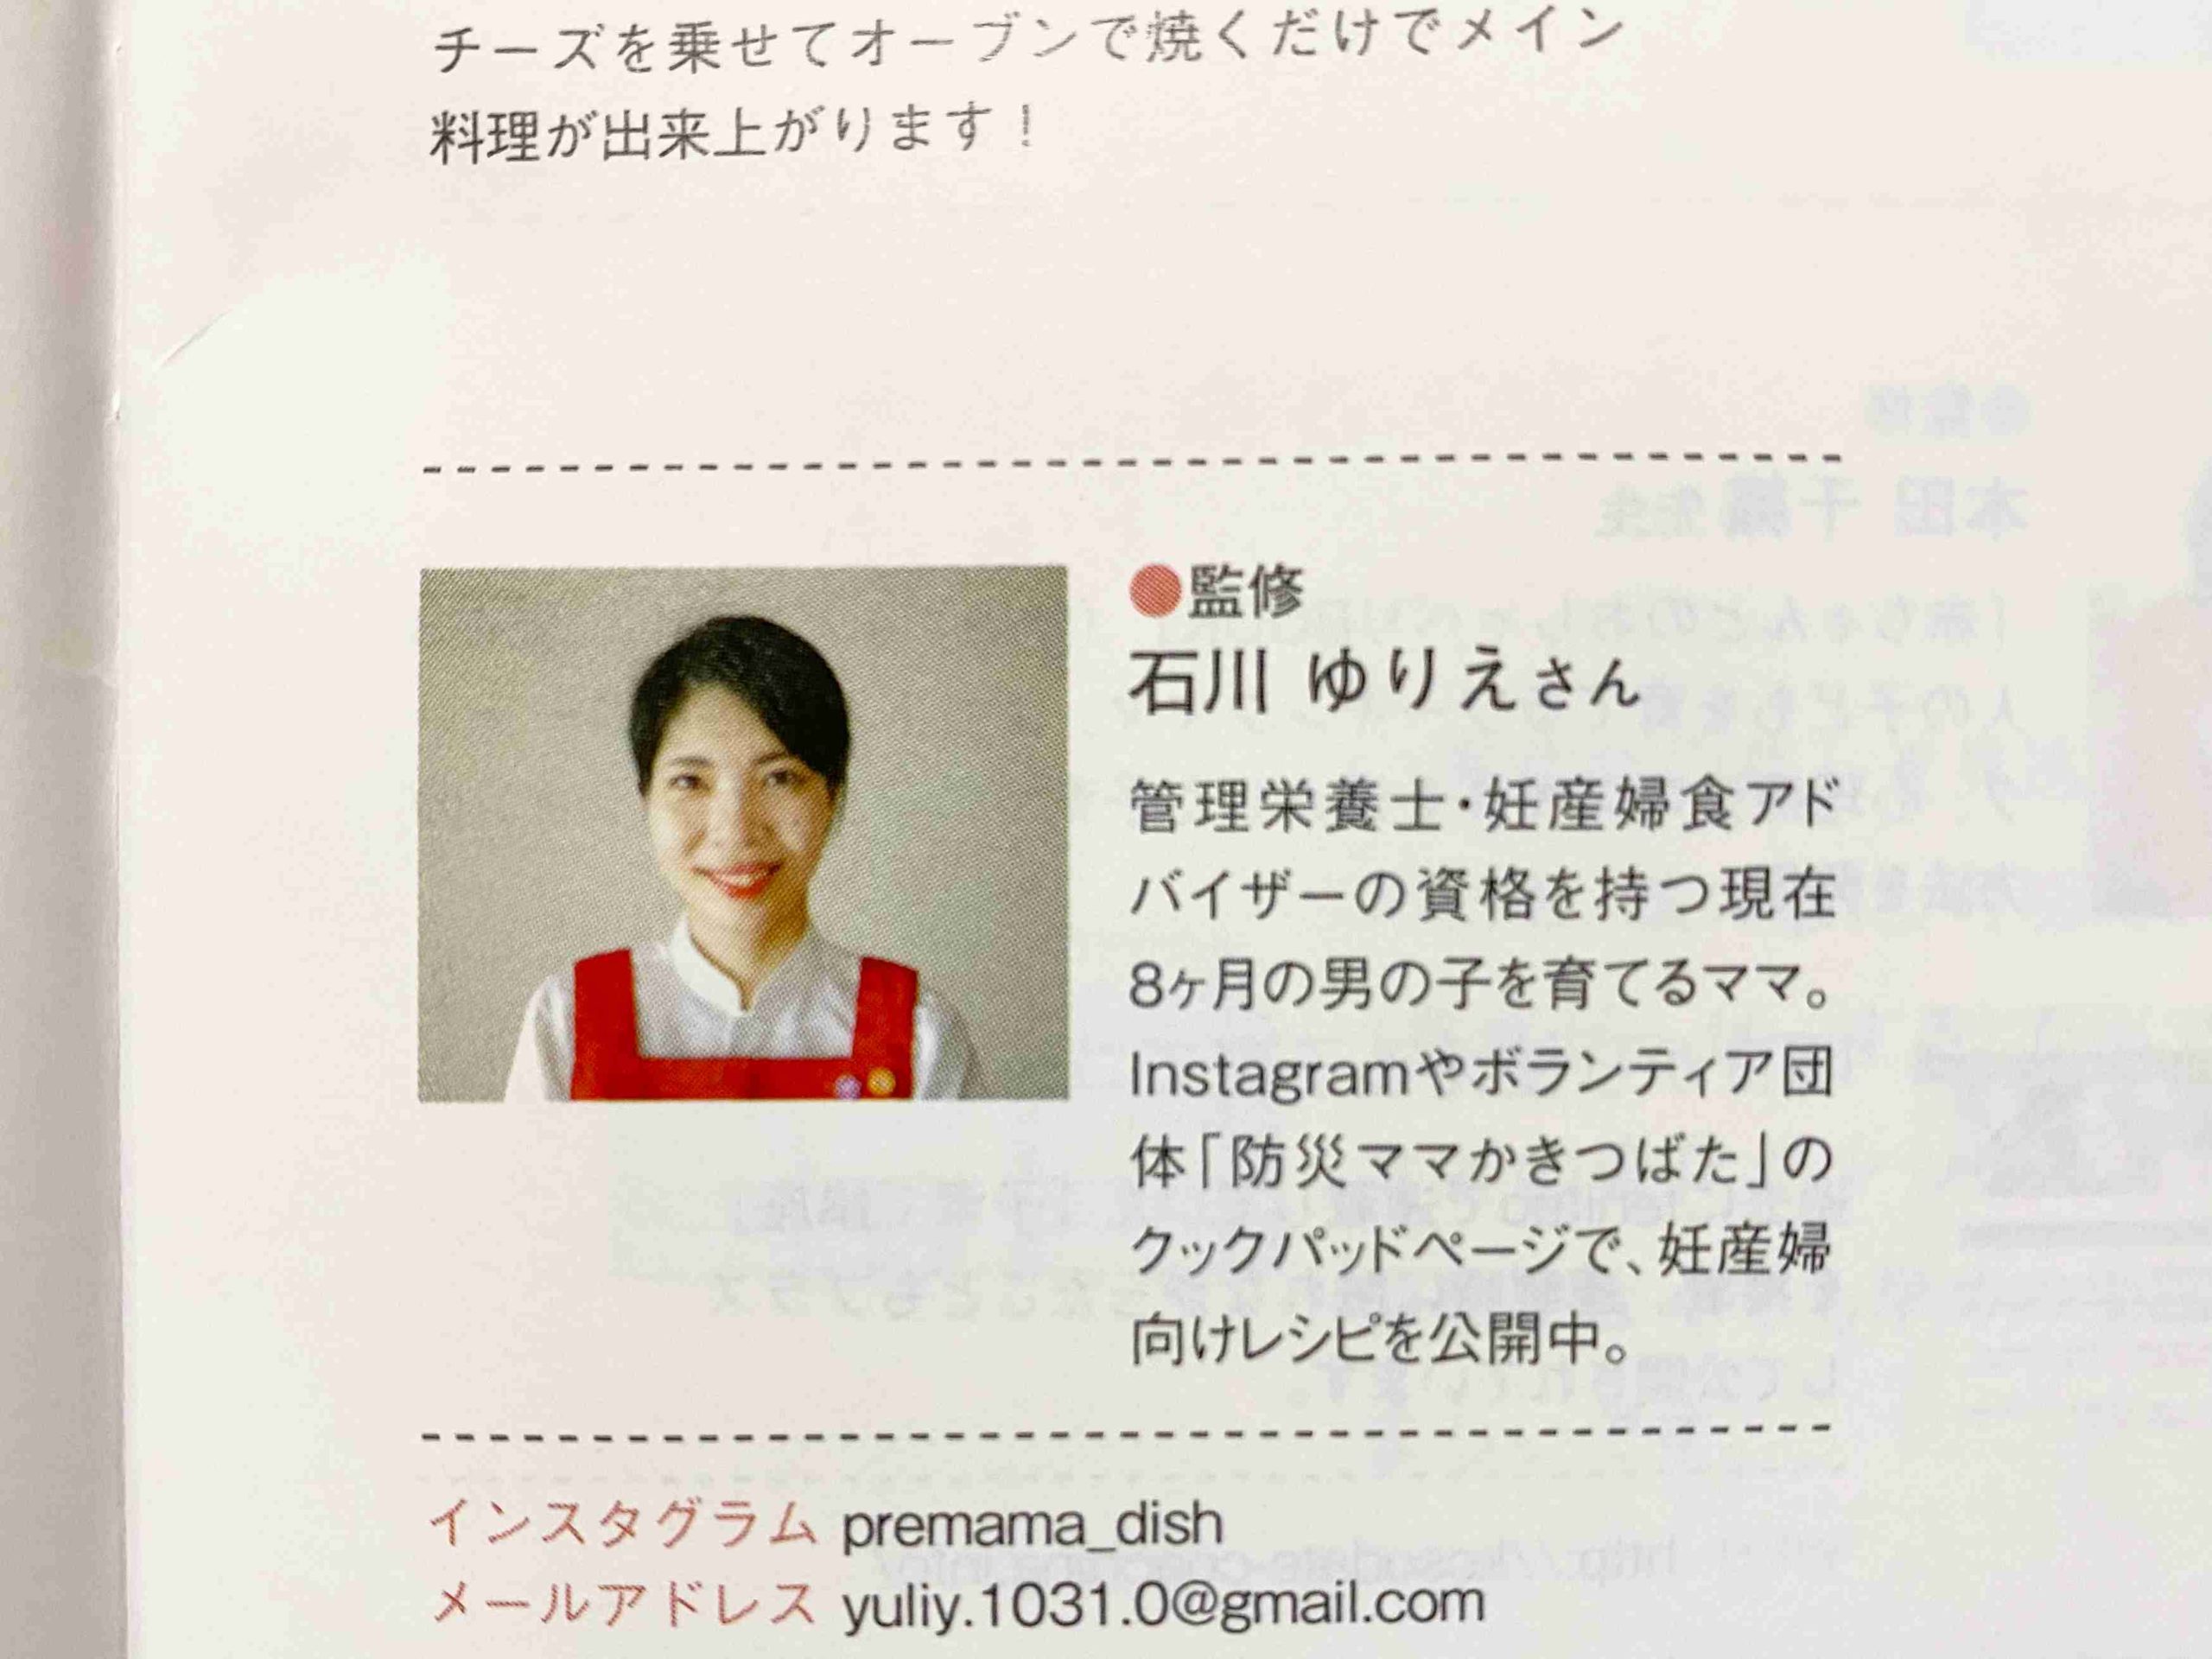 チーズを乗せてオーブンで焼くだけでメイン
料理が出来上がります！
●監修
石川 ゆりえさん
管理栄養士・妊産婦食アド
バイザーの資格を持つ現在
8ヶ月の男の子を育てるママ。
Instagramやボランティア団
体「防災ママかきつばた」の
クックパッドページで、妊産婦
向けレシピを公開中。
インスタグラム premama_dish
メールアドレス yuliy.1031.0@gmail.com